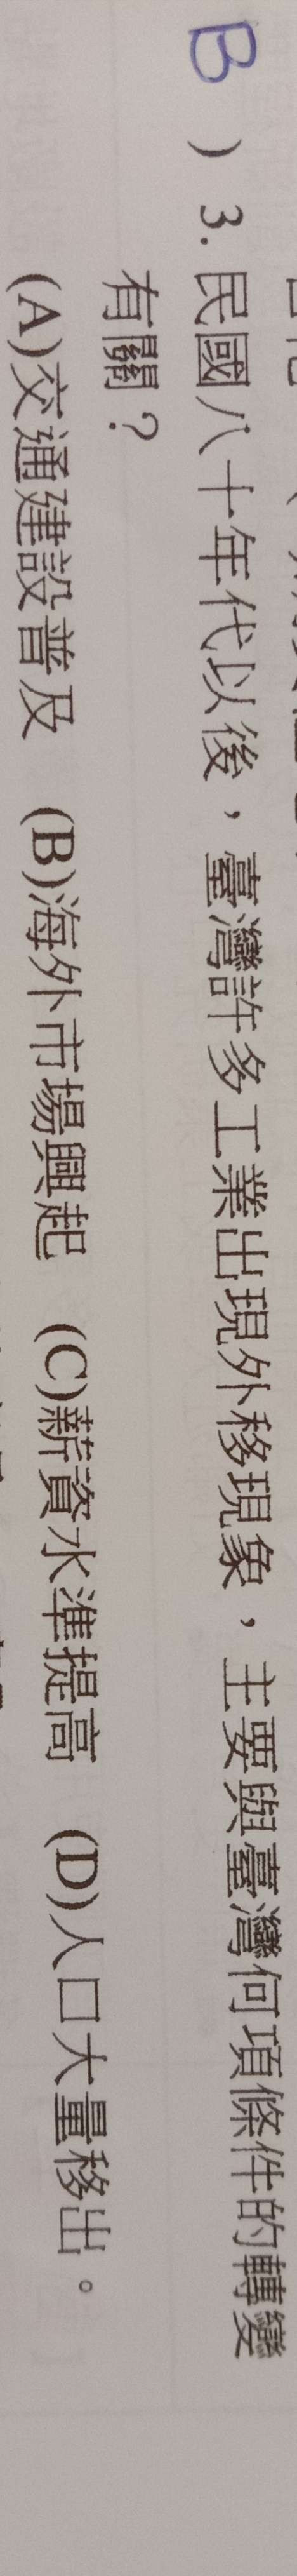 B ) 3. 民國八十年代以後，臺灣許多工業出現外移現象，主要與臺灣何項條件的轉變
有關？
(A)交通建設普及 (B)海外市場興起 (C)薪資水準提高 (D)人口大量移出。